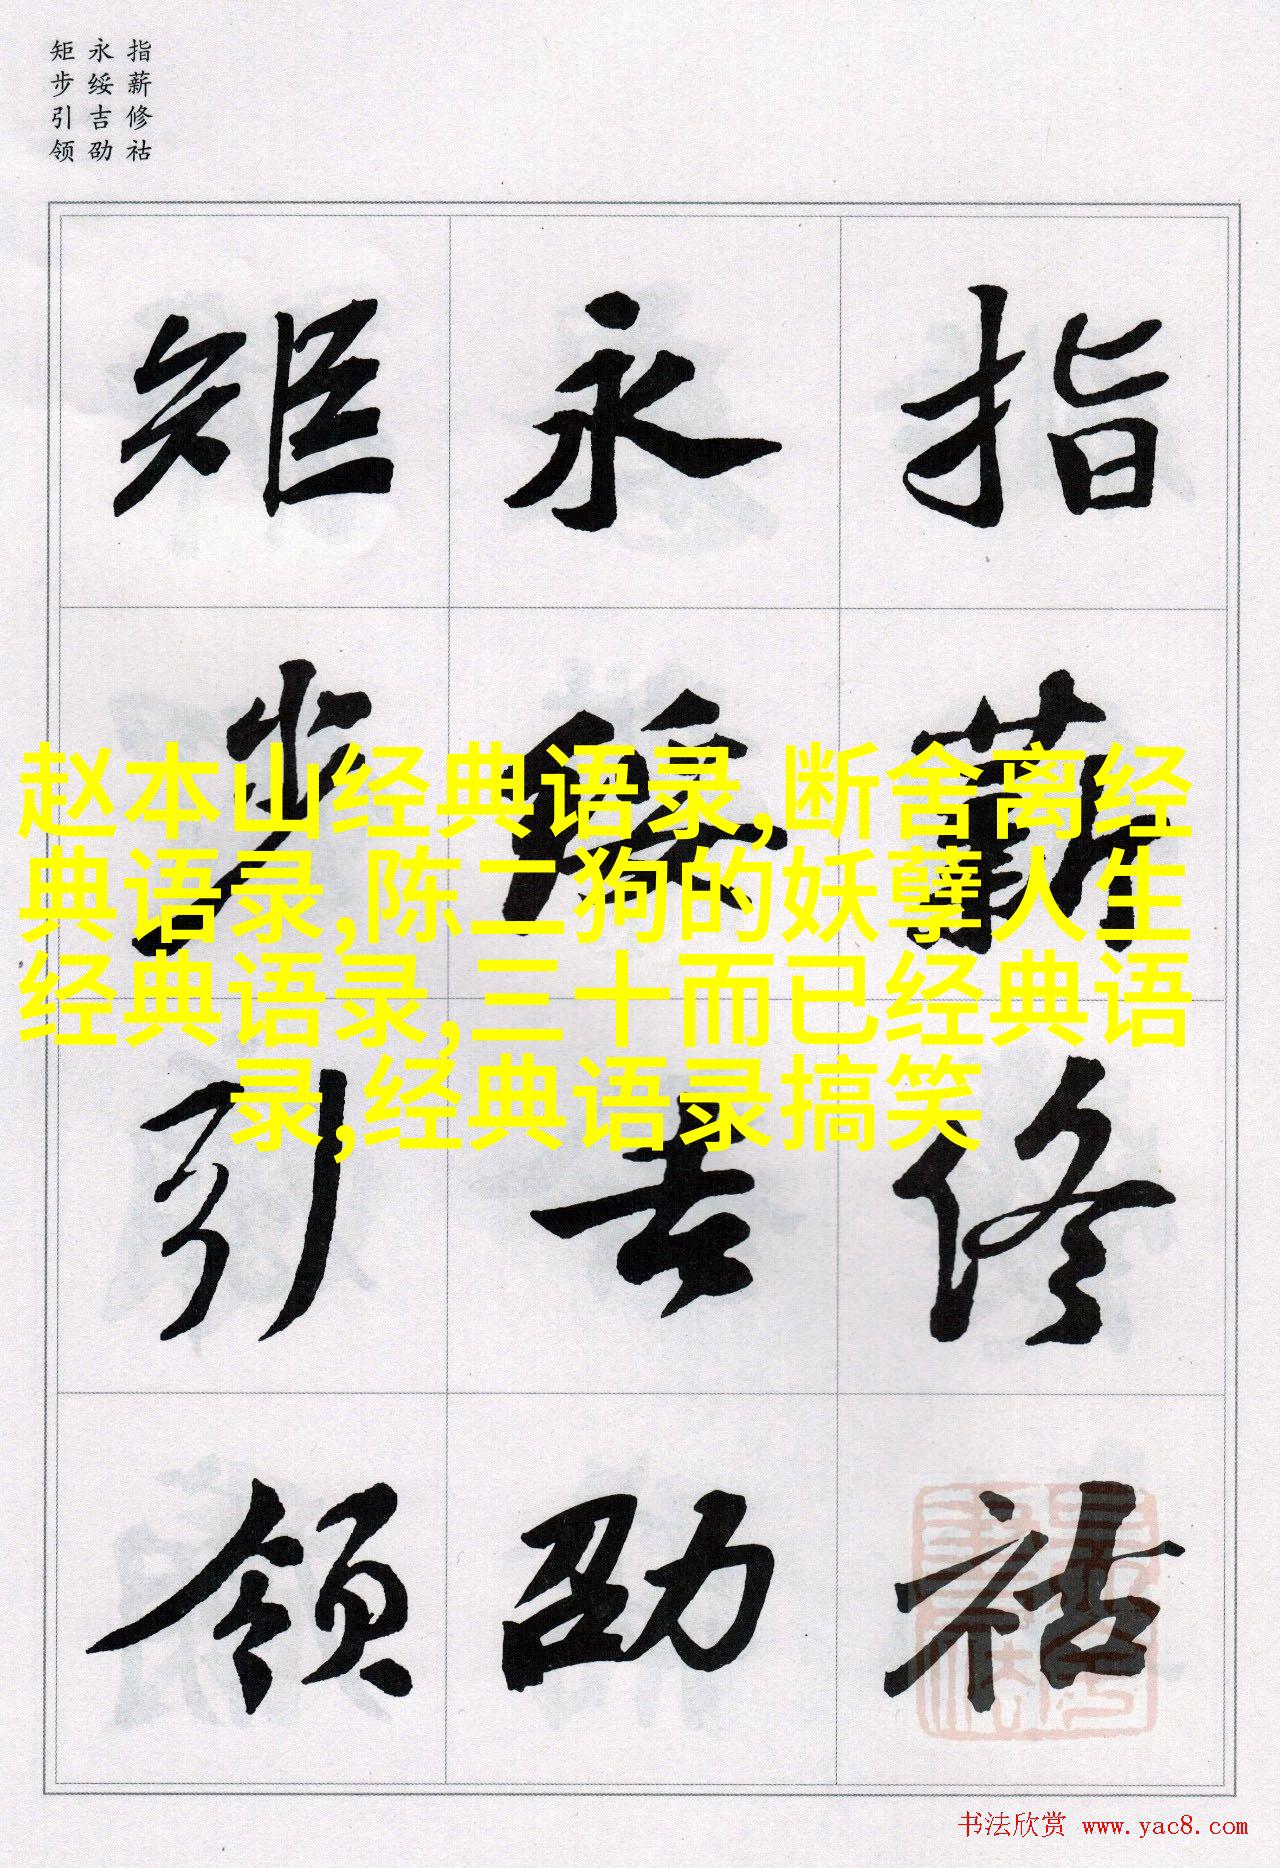 指薪修祜
永绥吉劭
矩步引领
指薪修祜
永绥吉劭
矩步引领
赵本山经典语录,断舍离经
典语录,陈二狗的妖孽人生
经典语录,三十而已经典语
录,经典语录搞笑
书法欣赏 www.yac8.com